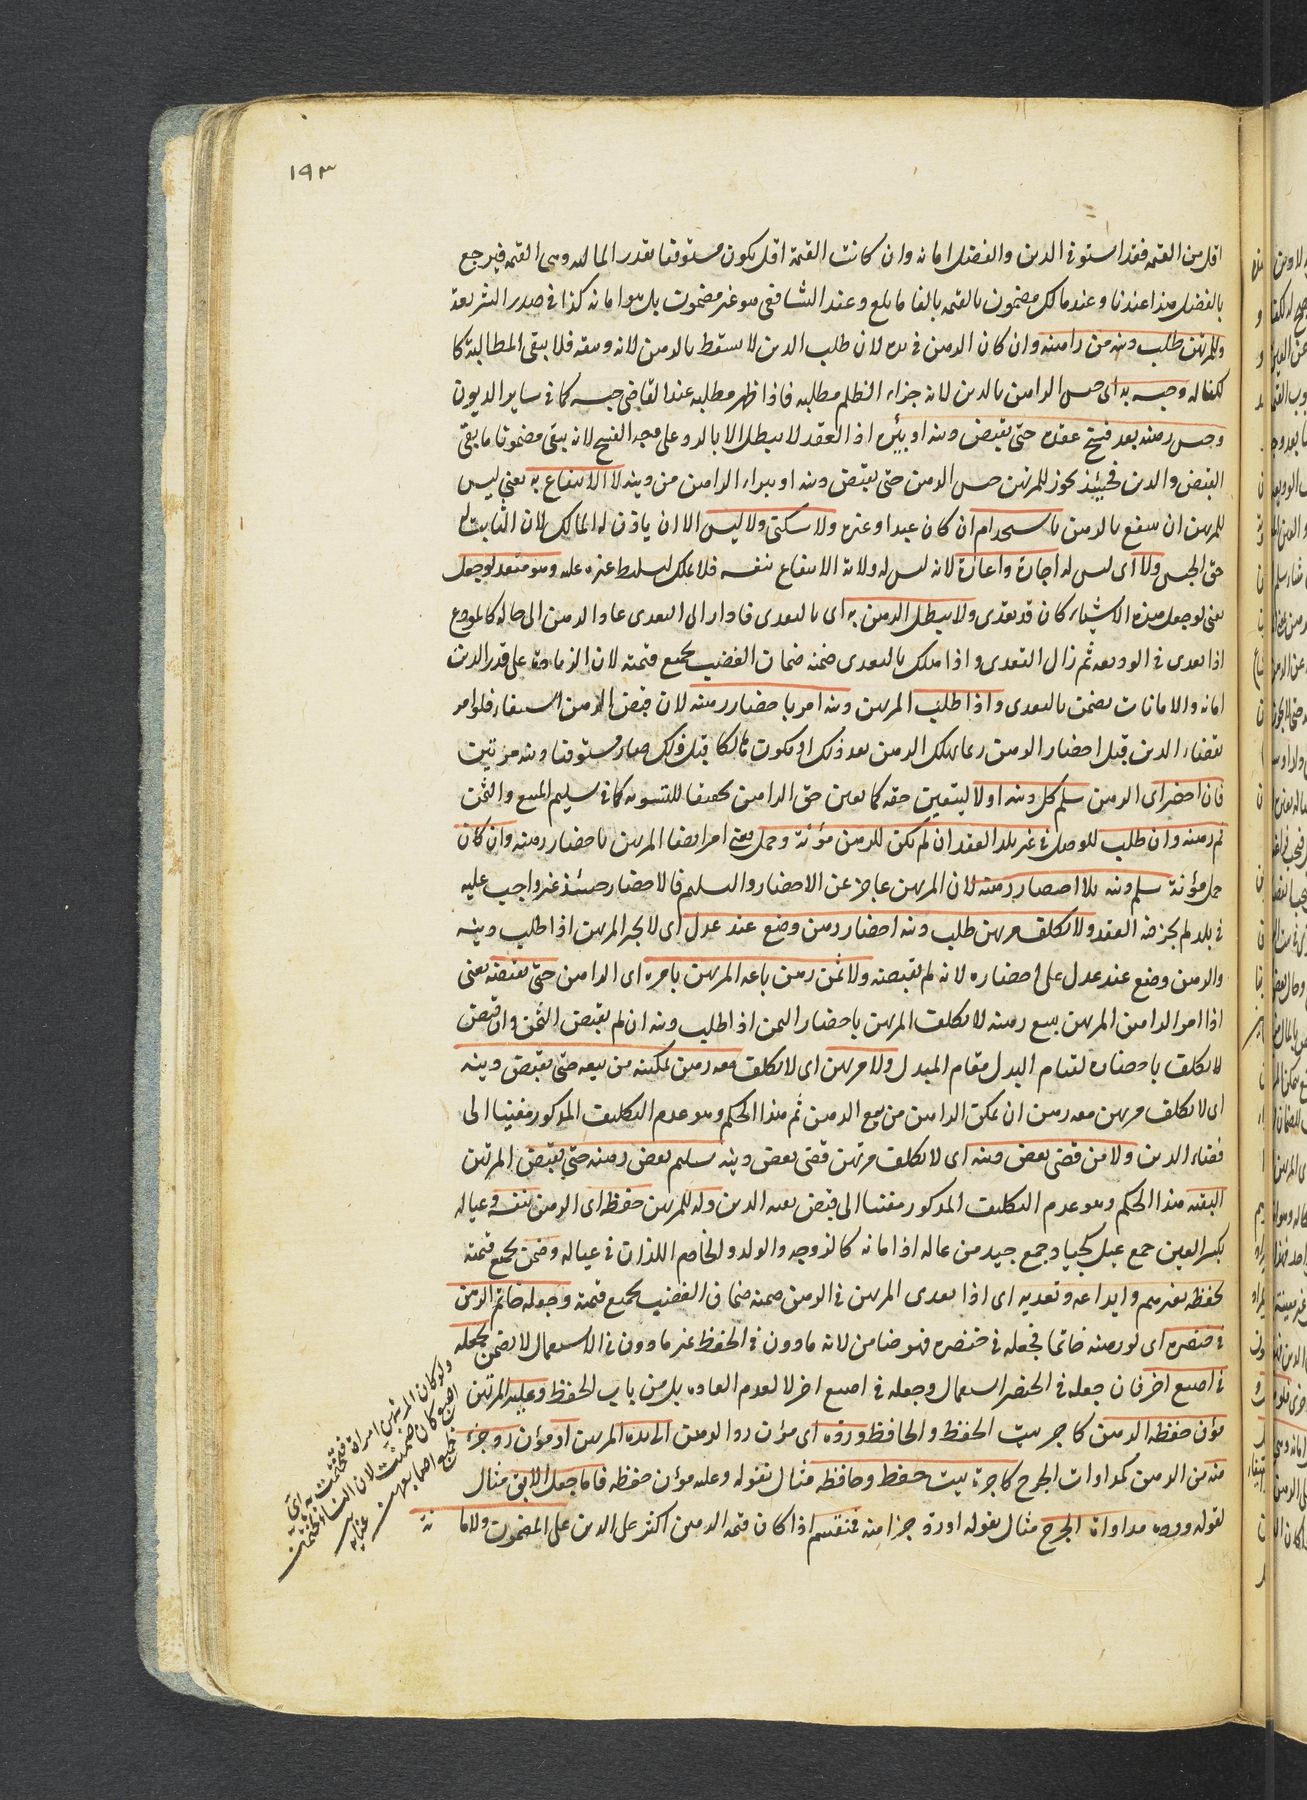 ١٩٣
اقل من القيمة فقد استوفى الدين والفضل امانة وان كانت القيمة اقل يكون مستوفيا بقدر المالية وهى القيمة فيرجع
بالفضل هذا عندنا وعند مالك مضمون بالقيمة بالغا ما بلغ وعند الشافعى هو غير مضمون بل هو امانة كذا فى صدر الشريعة
وللمرتهن طلب دينه من راهنه وان كان الرهن فى يده لان طلب الدين لا يسقط بالرهن لانه وثيقة فلا يبقى المطالبة كا
لكفالة وحبسه به اى حبس الراهن بالدين لانه جزاء الظلم مطلبه فاذا ظهر مطلبه عند القاضى حبسه كما فى سائر الديون
وحبس رهنه بعد فسخ عقده حتى يقبض دينه او يبرئه اذ العقد لا يبطل الا بالرد على وجه الفسخ لانه يبقى مضمونا ما بقى
القبض والدين فحينئذ يجوز للمرتهن حبس الرهن حتى يقبض دينه او يبراء الراهن من دينه لا الانتفاع به يعنى ليس
للمرتهن ان ينتفع بالرهن باستخدام ان كان عبدا او غيره ولا سكنى ولا لبس الا ان ياذن له المالك لان الثابت له
حق الحبس ولا اى ليس له اجارة واعارة لانه ليس له ولاية الانتفاع بنفسه فلا يملك تسليط غيره عليه وهو متعد لو جعل
يعنى لو جعل هذه الاشياء كان قد تعدى ولا يبطل الرهن به اى بالتعدى فاذا زال التعدى عاد الرهن الى حاله كالمودع
اذا تعدى فى الوديعة ثم زال التعدى واذا هلك بالتعدى ضمنه ضمان الغصب بجميع قيمته لان الزيادة على قدر الدين
امانة والامانات تضمن بالتعدى واذا طلب المرتهن دينه امر باحضار رهنه لان قبض الرهن استيفاء فلو امر
بقضاء الدين قبل احضار الرهن ربما يهلك الرهن بعد ذلك او يكون هالكا قبل ذلك صار مستوفيا دينه مرتين
فان احضر اى الرهن سلم كل دينه اولا ليتعين حقه كما تعين حق الراهن تحقيقا للتسوية كما فى تسليم المبيع والثمن
ثم رهنه وان طلب للوصل فى غير بلد العقد ان لم يكن للرهن مؤنة وحمل يعنى امر ايضا المرتهن باحضار رهنه وان كان
حمل مؤنة سلم دينه بلا احضار رهنه لان المرتهن عاجز عن الاحضار والتسليم فالاحضار حينئذ غير واجب عليه
فى بلد لم يجز فيه العقد ولا يكلف مرتهن طلب دينه احضار رهن وضع عند عدل اى لا يجبر المرتهن اذا طلب دينه
والرهن وضع عند عدل على احضاره لانه لم يقبضه ولا ثمن رهن باعه المرتهن بامره اى الراهن حتى يقبضه يعنى
اذا امر الراهن المرتهن ببيع رهنه لا يكلف المرتهن باحضار الثمن اذا طلب دينه ان لم يقبض الثمن وان قبض
لا يكلف باحضاره لقيام البدل مقام المبدل ولا مرتهن اى لا يكلف معه رهن تمكينه من بيعه حتى يقبض دينه
اى لا يكلف مرتهن معه رهن ان يمكن الراهن من بيع الرهن ثم هذا الحكم وهو عدم التكليف المذكور مغيا الى
قضاء الدين ولا من قضى بعض دينه اى لا يكلف مرتهن قضى بعض دينه تسليم بعض رهنه حتى يقبض المرتهن
البقية هذا الحكم وهو عدم التكليف المذكور مغيا الى قبض بقية الدين وله للمرتهن حفظه اى الرهن بنفسه وعياله
بكسر العين جمع عيل كجياد جمع جيد من عاله اذا مانه كالزوجه والولد والخادم اللذان فى عياله وضمن بجميع قيمته
بحفظه بغيرهم وايداعه وتعديه اى اذا تعدى المرتهن فى الرهن ضمنه ضمان الغصب بجميع قيمته وجعله خاتم الرهن
فى خنصره اى لو رهنه خاتما فجعله فى خنصره فهو ضامن لانه ماذون فى الحفظ غير ماذون فى الاستعمال لا يضمن بجعله
فى اصبع اخر فان جعله فى الخنصر استعمال وجعله فى اصبع اخر لا لعدم العادة بل من باب الحفظ وعليه المرتهن
مؤن حفظه الرهن كاجر بيت الحفظ والحافظ ورده اى مؤن رد الرهن الى يده المرتهن او مؤن رد جزء
منه من الرهن كمداوات الجرح كاجرة بيت حفظ وحافظه مثال لقوله وعليه مؤن حفظه فاما جعل الابق مثال
لقوله ورده مداواة الجرح مثال لقوله او رد جزء منه فتنقسم اذا كان قيمة الرهن اكثر على الدين على المضمون والاما نة
ولو كان المرتهن امراة فتختمت به اى
اصبع كان ضمنت لان النساء يتختمن
بجميع اصابعهن عناية